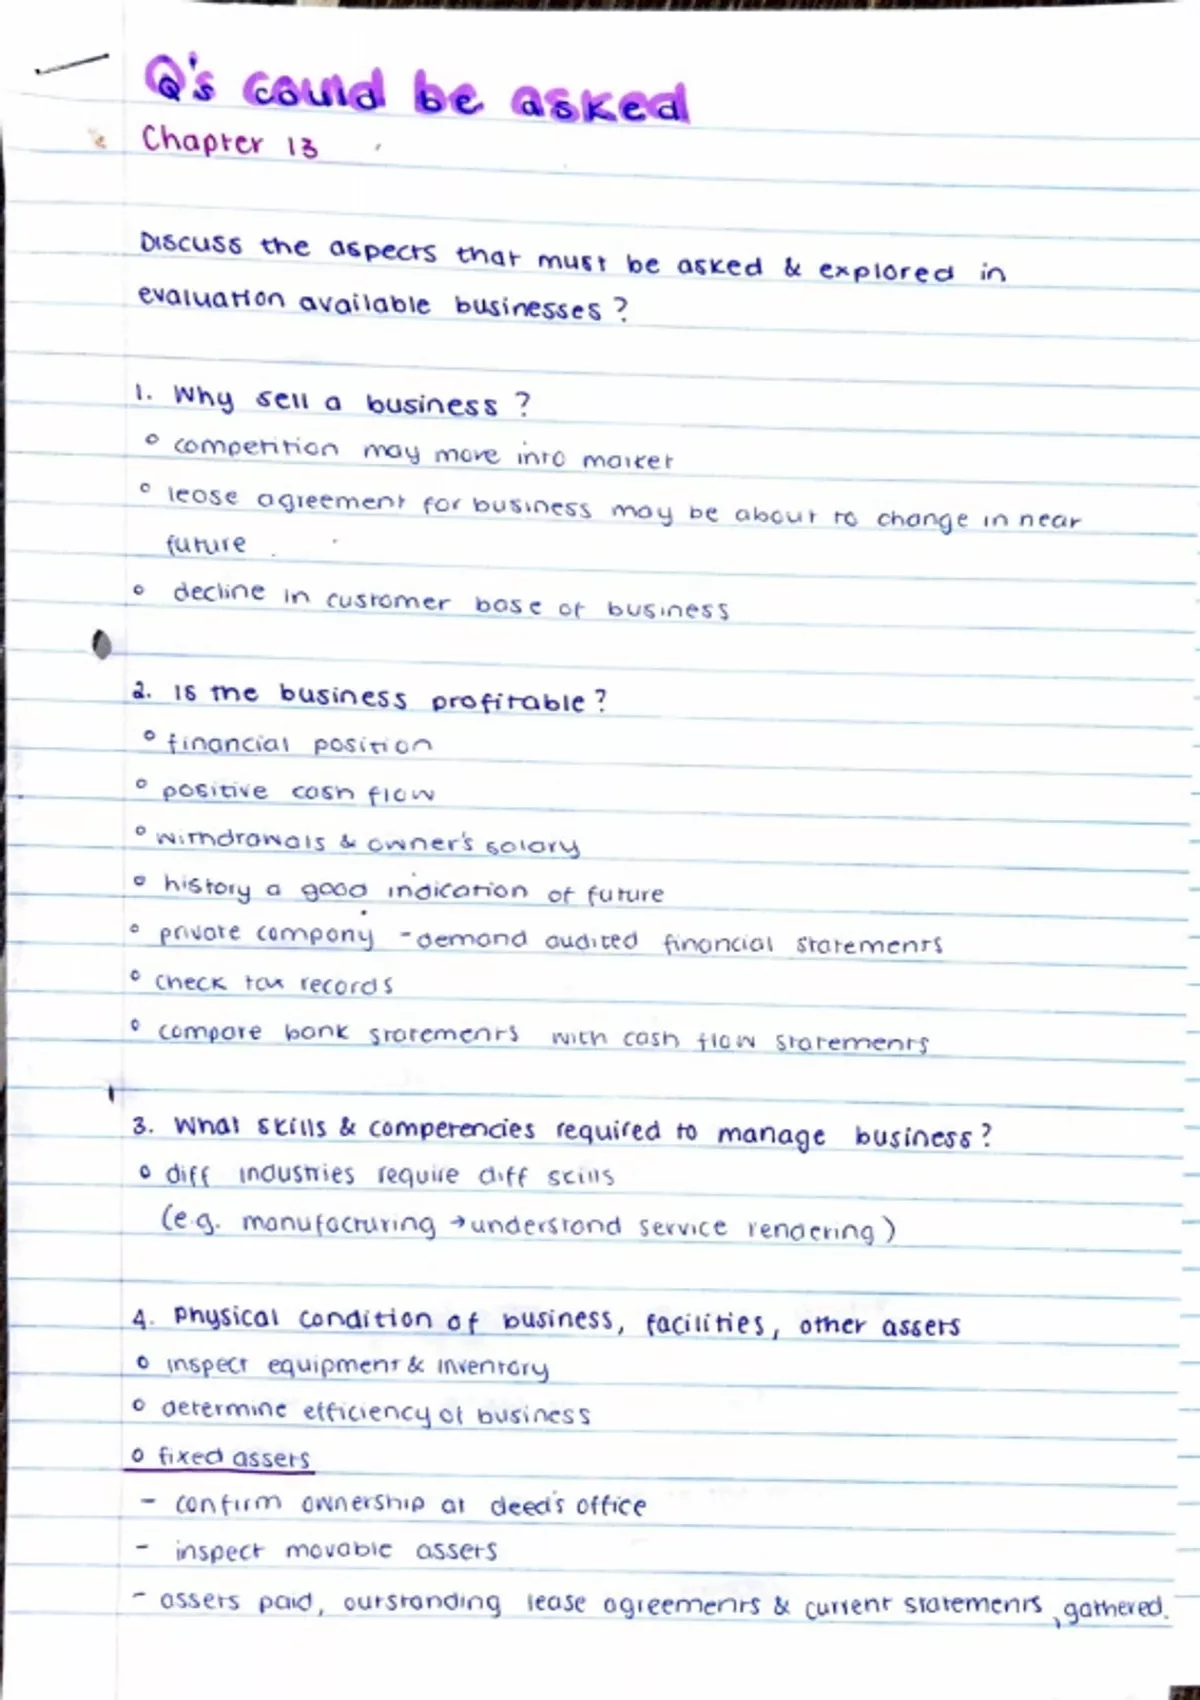 Q's could be asked
Chapter 13
Discuss the aspects that must be asked & explored in
evaluation available businesses?
1. Why sell a business?
° competition may move into market
° lease agreement for business may be about to change in near
future
° decline in customer base of business
2. Is the business profitable?
° financial position
° positive cash flow
° withdrawals & owner's salary
° history a good indication of future
° private company - demand audited financial statements
° check tax records
° compare bank statements with cash flow statements
3. What skills & competencies required to manage business?
° diff industries require diff skills
(e.g. manufacturing → understand service rendering)
4. Physical condition of business, facilities, other assets
° inspect equipment & inventory
° determine efficiency of business
° fixed assets
- confirm ownership at deed's office
- inspect movable assets
- assets paid, outstanding lease agreements & current statements, gathered.